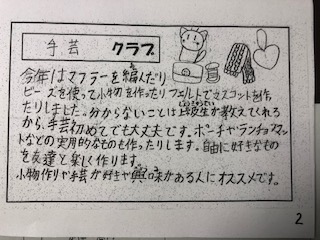 手芸 クラブ
今年はマフラーを編んだり
ビーズを使って小物を作ったりフェルトでマスコットを作っ
たりしました。分からないことは上級生が教えてくれる
から、手芸初めてでも大丈夫です。ポーチやランチョンマッ
トなどの実用的なものも作ったりします。自由に好きなもの
を友達と楽しく作ります。
小物作りや手芸が好きや興味がある人にオススメです。
2